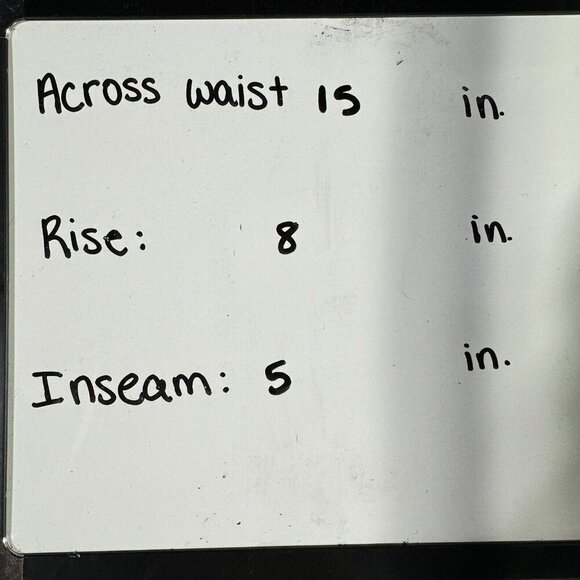 Across waist 15 in.
Rise: 8 in.
Inseam: 5 in.